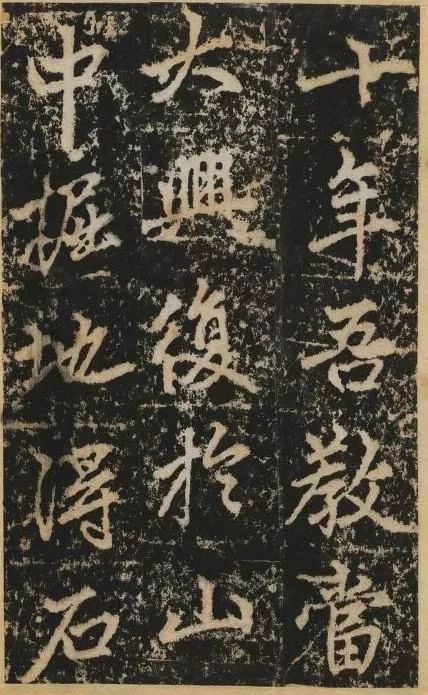 十年吾教當
大興復於山
中掘地得石